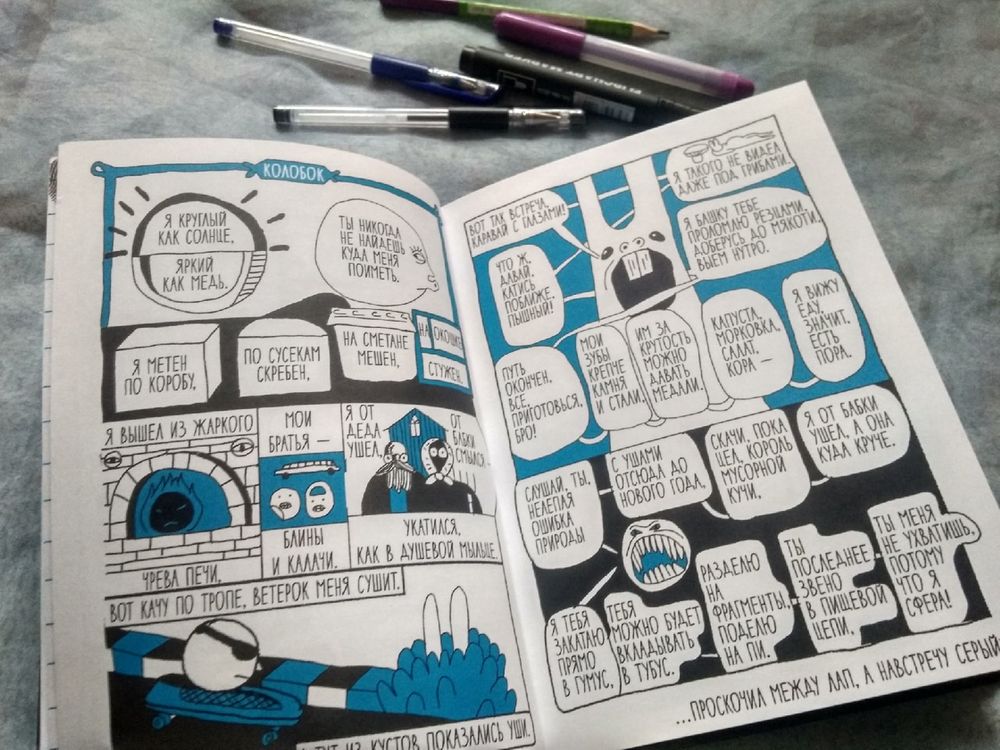 КОЛОБОК
Я КРУГЛЫЙ
КАК СОЛНЦЕ,
ЯРКИЙ
КАК МЕДЬ.
ТЫ НИКОГДА
НЕ НАЙДЕШЬ
КУДА МЕНЯ
ПОИМЕТЬ.
Я МЕТЕН
ПО КОРОБУ,
ПО СУСЕКАМ
СКРЕБЕН,
НА СМЕТАНЕ
МЕШЕН,
НА ОКОШКЕ
СТУЖЕН.
Я ВЫШЕЛ ИЗ ЖАРКОГО
ЧРЕВА ПЕЧИ,
МОИ
БРАТЬЯ —
БЛИНЫ
И КАЛАЧИ.
Я ОТ
ДЕДА
УШЕЛ,
ОТ
БАБКИ
СМЫЛСЯ,
УКАТИЛСЯ,
КАК В ДУШЕВОЙ МЫЛЬЦЕ.
ВОТ КАЧУ ПО ТРОПЕ, ВЕТЕРОК МЕНЯ СУШИТ.
А ТУТ ИЗ КУСТОВ ПОКАЗАЛИСЬ УШИ.
ВОТ ТАК ВСТРЕЧА,
КАРАВАЙ С ГЛАЗАМИ!
Я ТАКОГО НЕ ВИДЕЛ
ДАЖЕ ПОД ГРИБАМИ.
ЧТО Ж,
ДАВАЙ,
КАТИСЬ
ПОБЛИЖЕ,
ПЫШНЫЙ!
Я БАШКУ ТЕБЕ
ПРОЛОМЛЮ РЕЗЦАМИ,
ДОБЕРУСЬ ДО МЯКОТИ,
ВЫЕМ НУТРО.
ПУТЬ
ОКОНЧЕН,
ВСЕ,
ПРИГОТОВЬСЯ,
БРО!
МОИ
ЗУБЫ
КРЕПЧЕ
КАМНЯ
И СТАЛИ,
ИМ ЗА
КРУТОСТЬ
МОЖНО
ДАВАТЬ
МЕДАЛИ.
КАПУСТА,
МОРКОВКА,
САЛАТ,
КОРА —
Я ВИЖУ
ЕДУ,
ЗНАЧИТ,
ЕСТЬ
ПОРА.
СЛУШАЙ, ТЫ,
НЕЛЕПАЯ
ОШИБКА
ПРИРОДЫ
С УШАМИ
ОТСЮДА ДО
НОВОГО ГОДА,
СКАЧИ, ПОКА
ЦЕЛ, КОРОЛЬ
МУСОРНОЙ
КУЧИ,
Я ОТ БАБКИ
УШЕЛ, А ОНА
КУДА КРУЧЕ.
Я ТЕБЯ
ЗАКАТАЮ
ПРЯМО
В ГУМУС,
ТЕБЯ
МОЖНО БУДЕТ
ВКЛАДЫВАТЬ
В ТУБУС.
РАЗДЕЛЮ
НА
ФРАГМЕНТЫ,
ПОДЕЛЮ
НА ПИ.
ТЫ
ПОСЛЕДНЕЕ
ЗВЕНО
В ПИЩЕВОЙ
ЦЕПИ,
ТЫ МЕНЯ
НЕ УХВАТИШЬ,
ПОТОМУ
ЧТО Я
СФЕРА!
...ПРОСКОЧИЛ МЕЖДУ ЛАП, А НАВСТРЕЧУ СЕРЫЙ